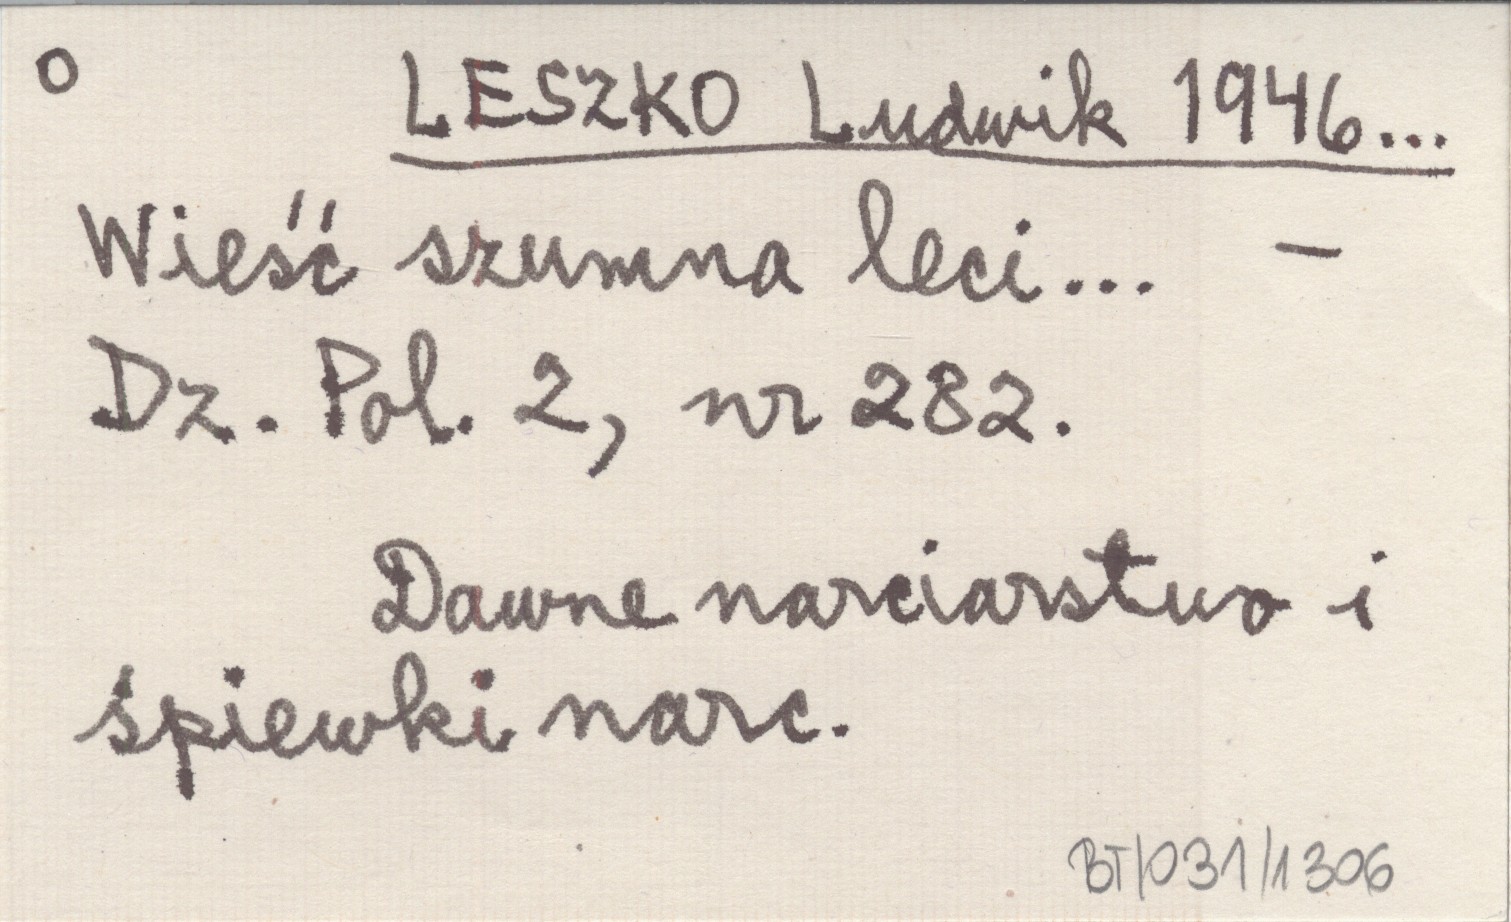 o LESZKO Ludwik 1946...
Wieść szumna leci... –
Dz. Pol. 2, nr 282.
Dawne narciarstwo i
śpiewki narc.
BT/031/1306